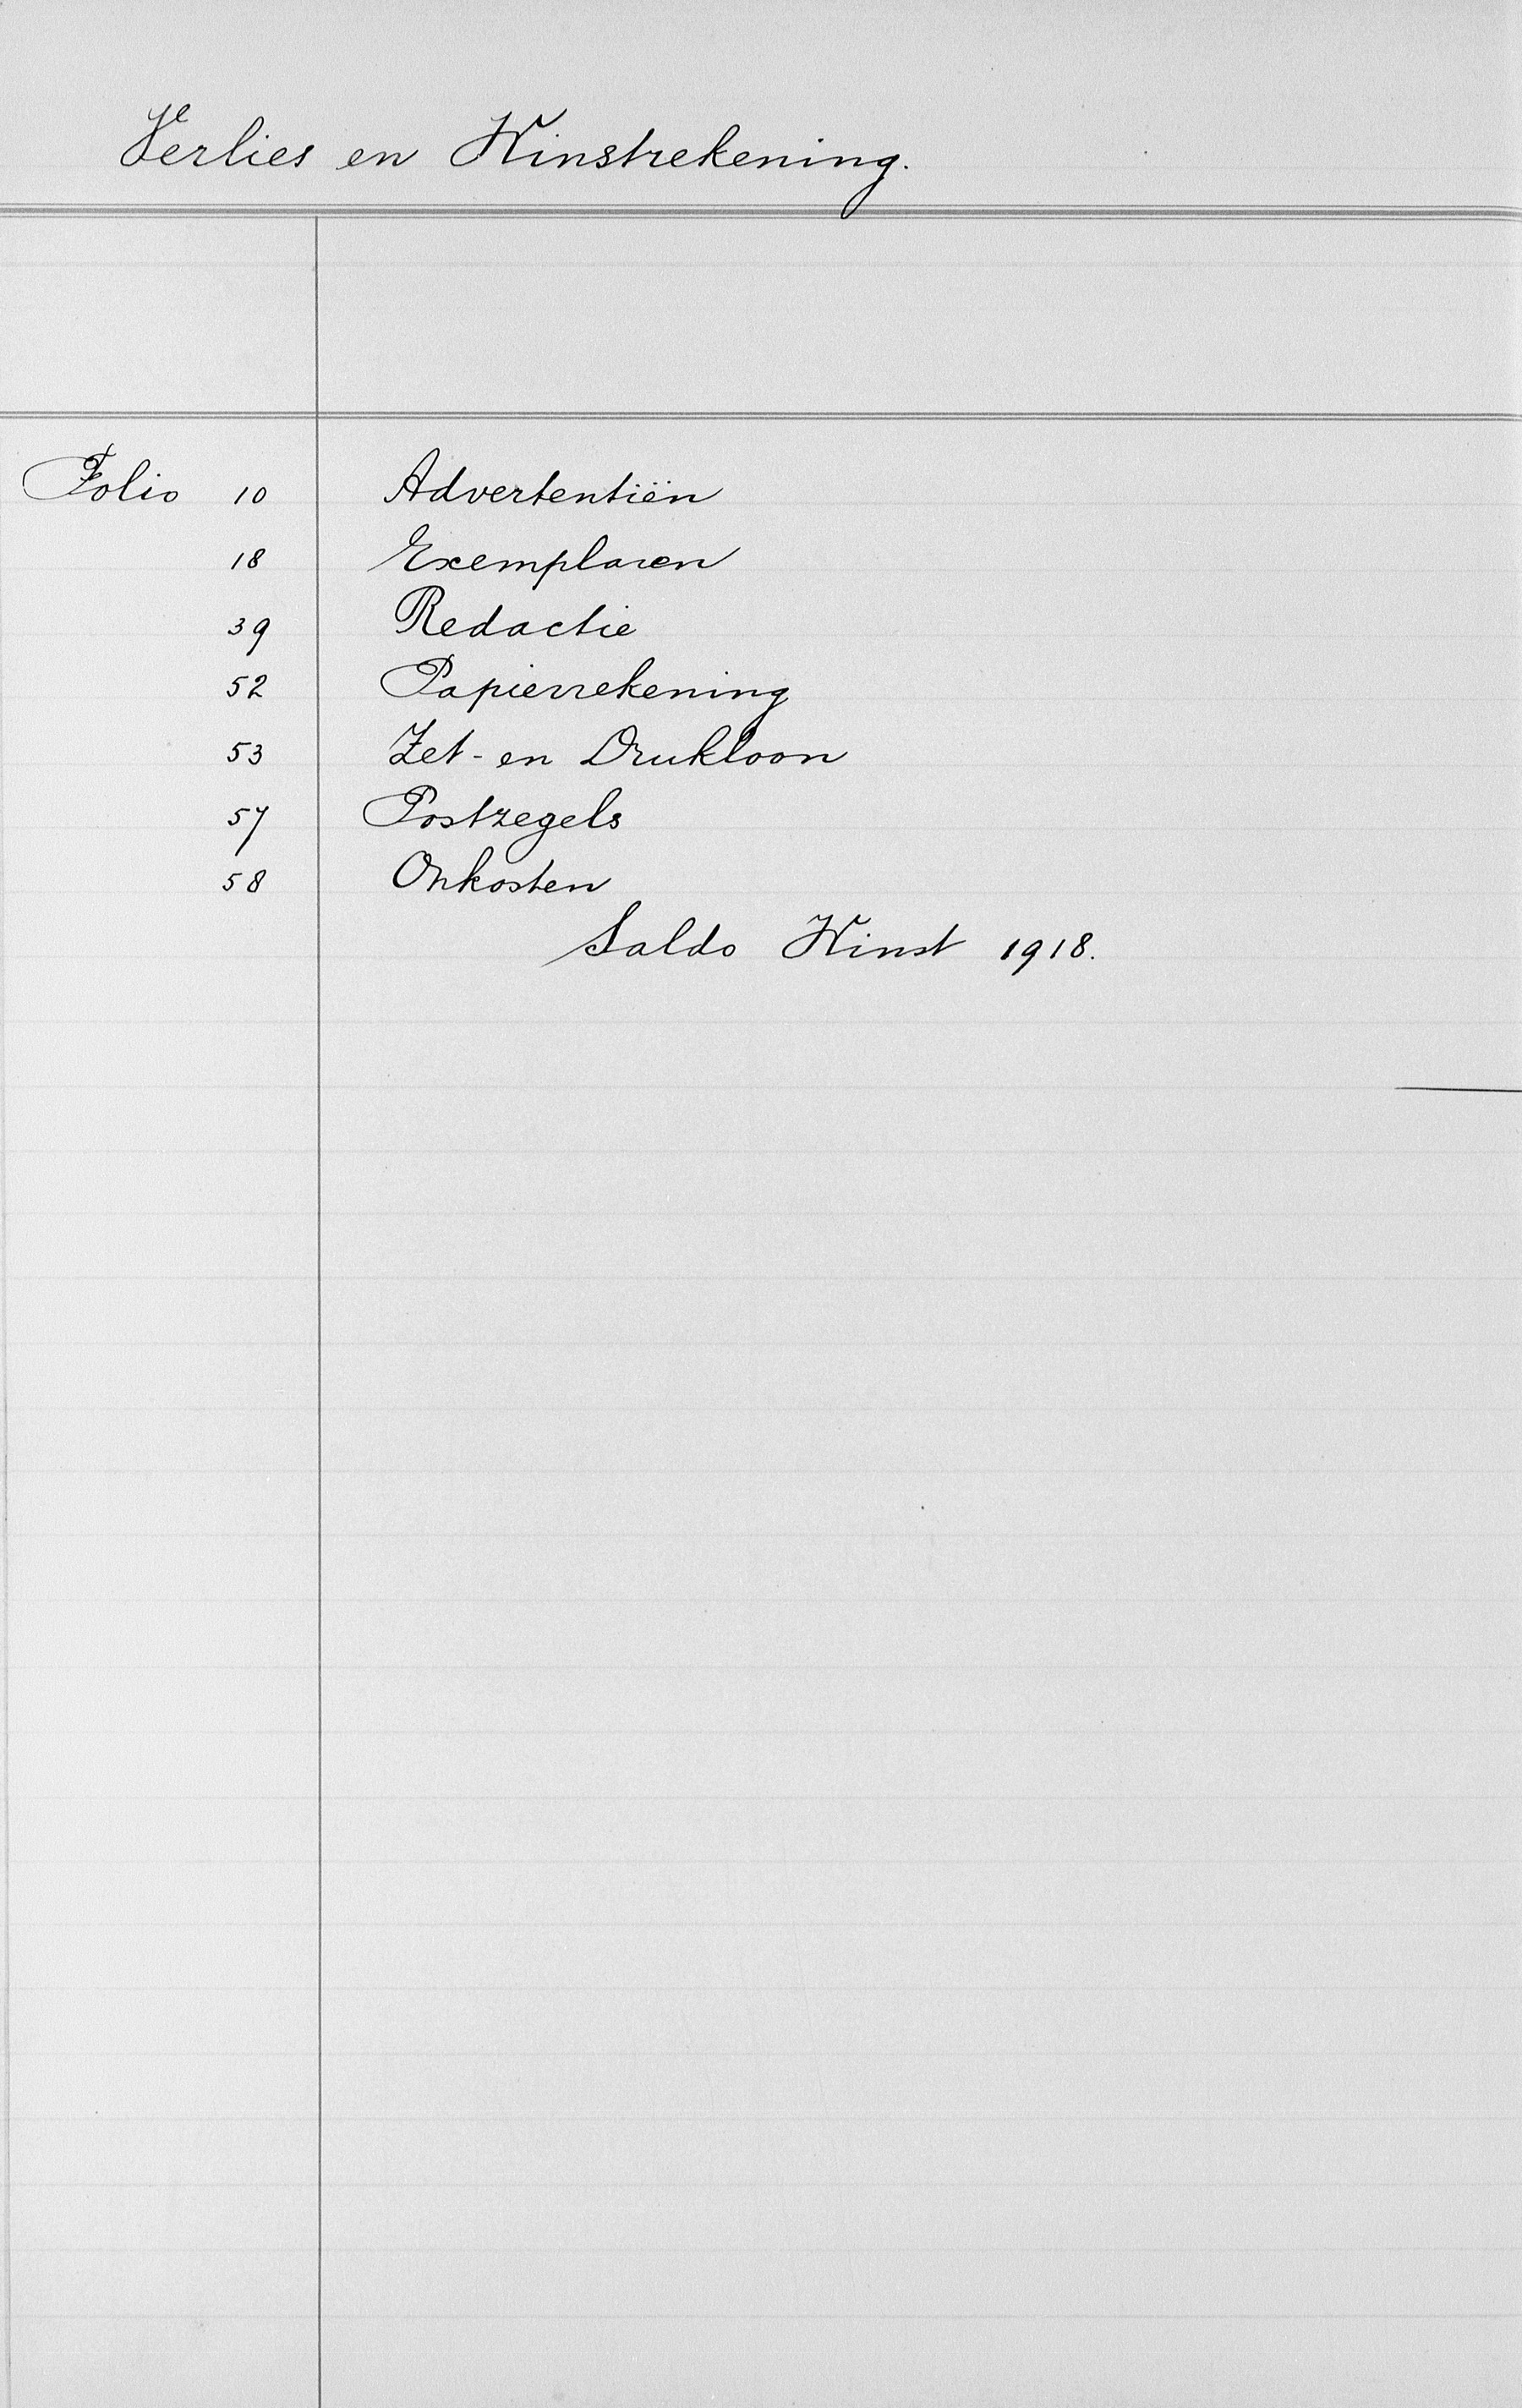 Verlies en Winstrekening.
Folio 10 Advertentiën
18 Exemplaren
39 Redactie
52 Papierrekening
53 Zet- en Drukloon
57 Postzegels
58 Onkosten
Saldo Winst 1918.